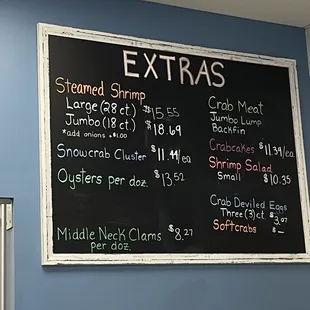 EXTRAS
Steamed Shrimp
Large (28 ct.) $15.55
Jumbo (18 ct.) $18.69
*add onions +$1.00
Snowcrab Cluster $11.44/ea
Oysters per doz. $13.52
Middle Neck Clams $8.27
per doz.
Crab Meat
Jumbo Lump
Backfin
Crabcakes $11.39/ea
Shrimp Salad
Small $10.35
Crab Deviled Eggs
Three (3)ct. $3.07
Softcrabs $ –